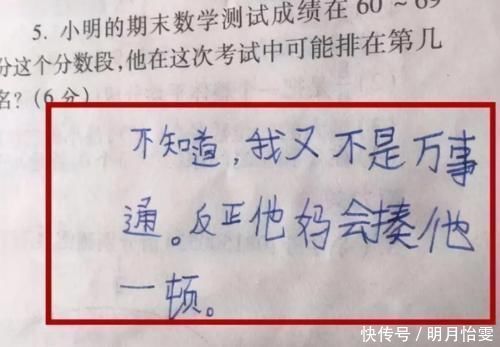 5. 小明的期末数学测试成绩在 60 ~ 69
分这个分数段,他在这次考试中可能排在第几
名? (6 分)
不知道,我又不是万事
通。反正他妈会揍他
一顿。
快传号 / 明月怡雯